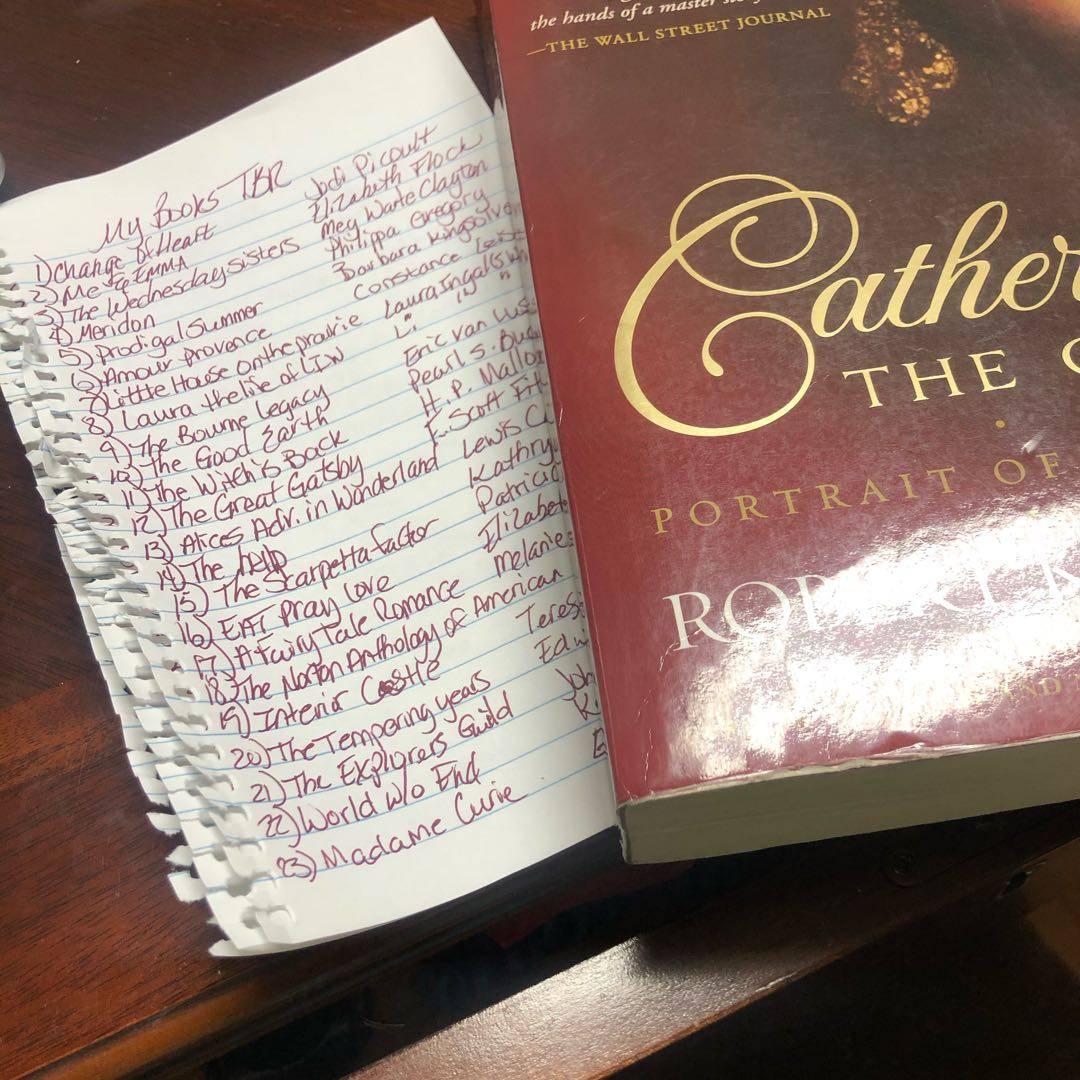 My Books TBR
1) Change of Heart Jodi Picoult
2) Me & EMMA Elizabeth Flock
3) The Wednesday sisters Meg Waite Clayton
4) Meridon Philippa Gregory
5) Prodigal Summer Barbara Kingsolver
6) Amour Provence Constance Leisu
7) Little House on the prairie Laura Ingalls W
8) Laura the life of LIW L. I W "
9) The Bourne Legacy Eric Van Lus
10) The Good Earth Pearl S. Buc
11) The Witch is Back H. P. Mallo
12) The Great Gatsby F. Scott Fit
13) Alices Adv. in Wonderland Lewis C
14) The help Kathry
15) The Scarpetta factor Patricia
16) EAT Pray love Elizabet
17) A Fairy Tale Romance melanie
18) The Norton Anthology of American
19) Interior Castle Teres
20) The Tempering years Edw
21) The Explorers Guild Joh
22) World w/o End K.
23) Madame Curie E
the hands of a master
—THE WALL STREET JOURNAL
Cather
THE G
PORTRAIT OF
ROBERT K
AND